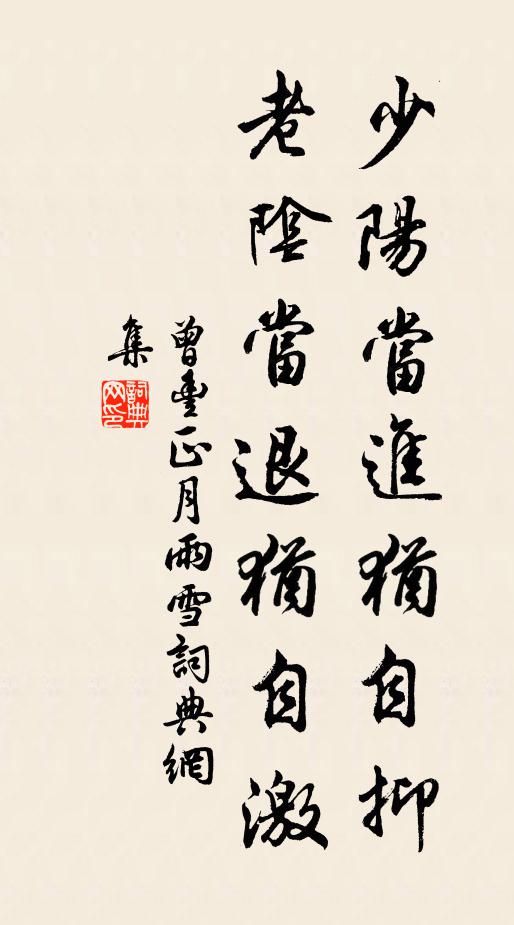 少陽當進猶自抑
老陰當退猶自激
曾豐正月雨雪詞典網
集
詞典網印